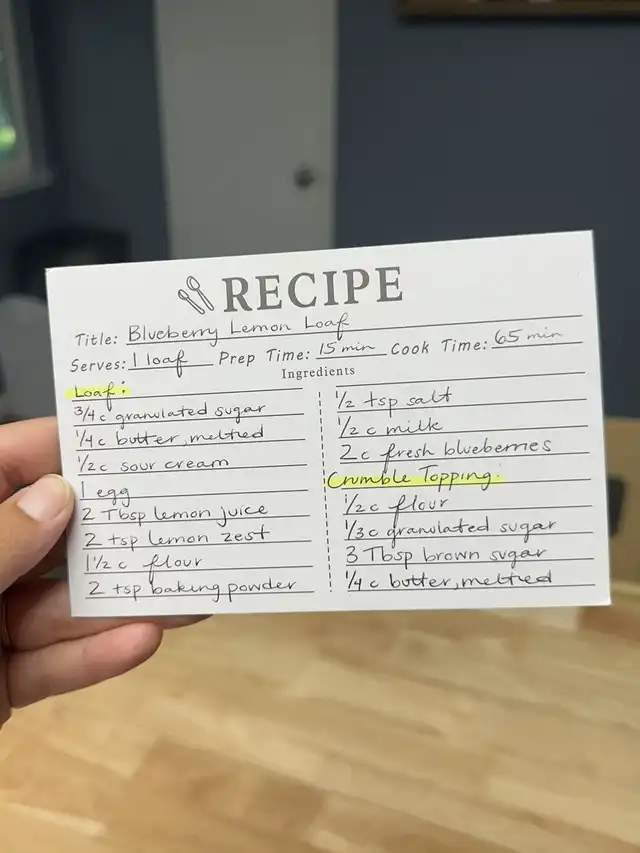 RECIPE
Title: Blueberry Lemon Loaf
Serves: 1 loaf Prep Time: 15 min Cook Time: 65 min
Ingredients
Loaf:
3/4 c granulated sugar
1/4 c butter, melted
1/2 c sour cream
1 egg
2 Tbsp lemon juice
2 tsp lemon zest
1 1/2 c flour
2 tsp baking powder
1/2 tsp salt
1/2 c milk
2 c fresh blueberries
Crumble Topping:
1/2 c flour
1/3 c granulated sugar
3 Tbsp brown sugar
1/4 c butter, melted